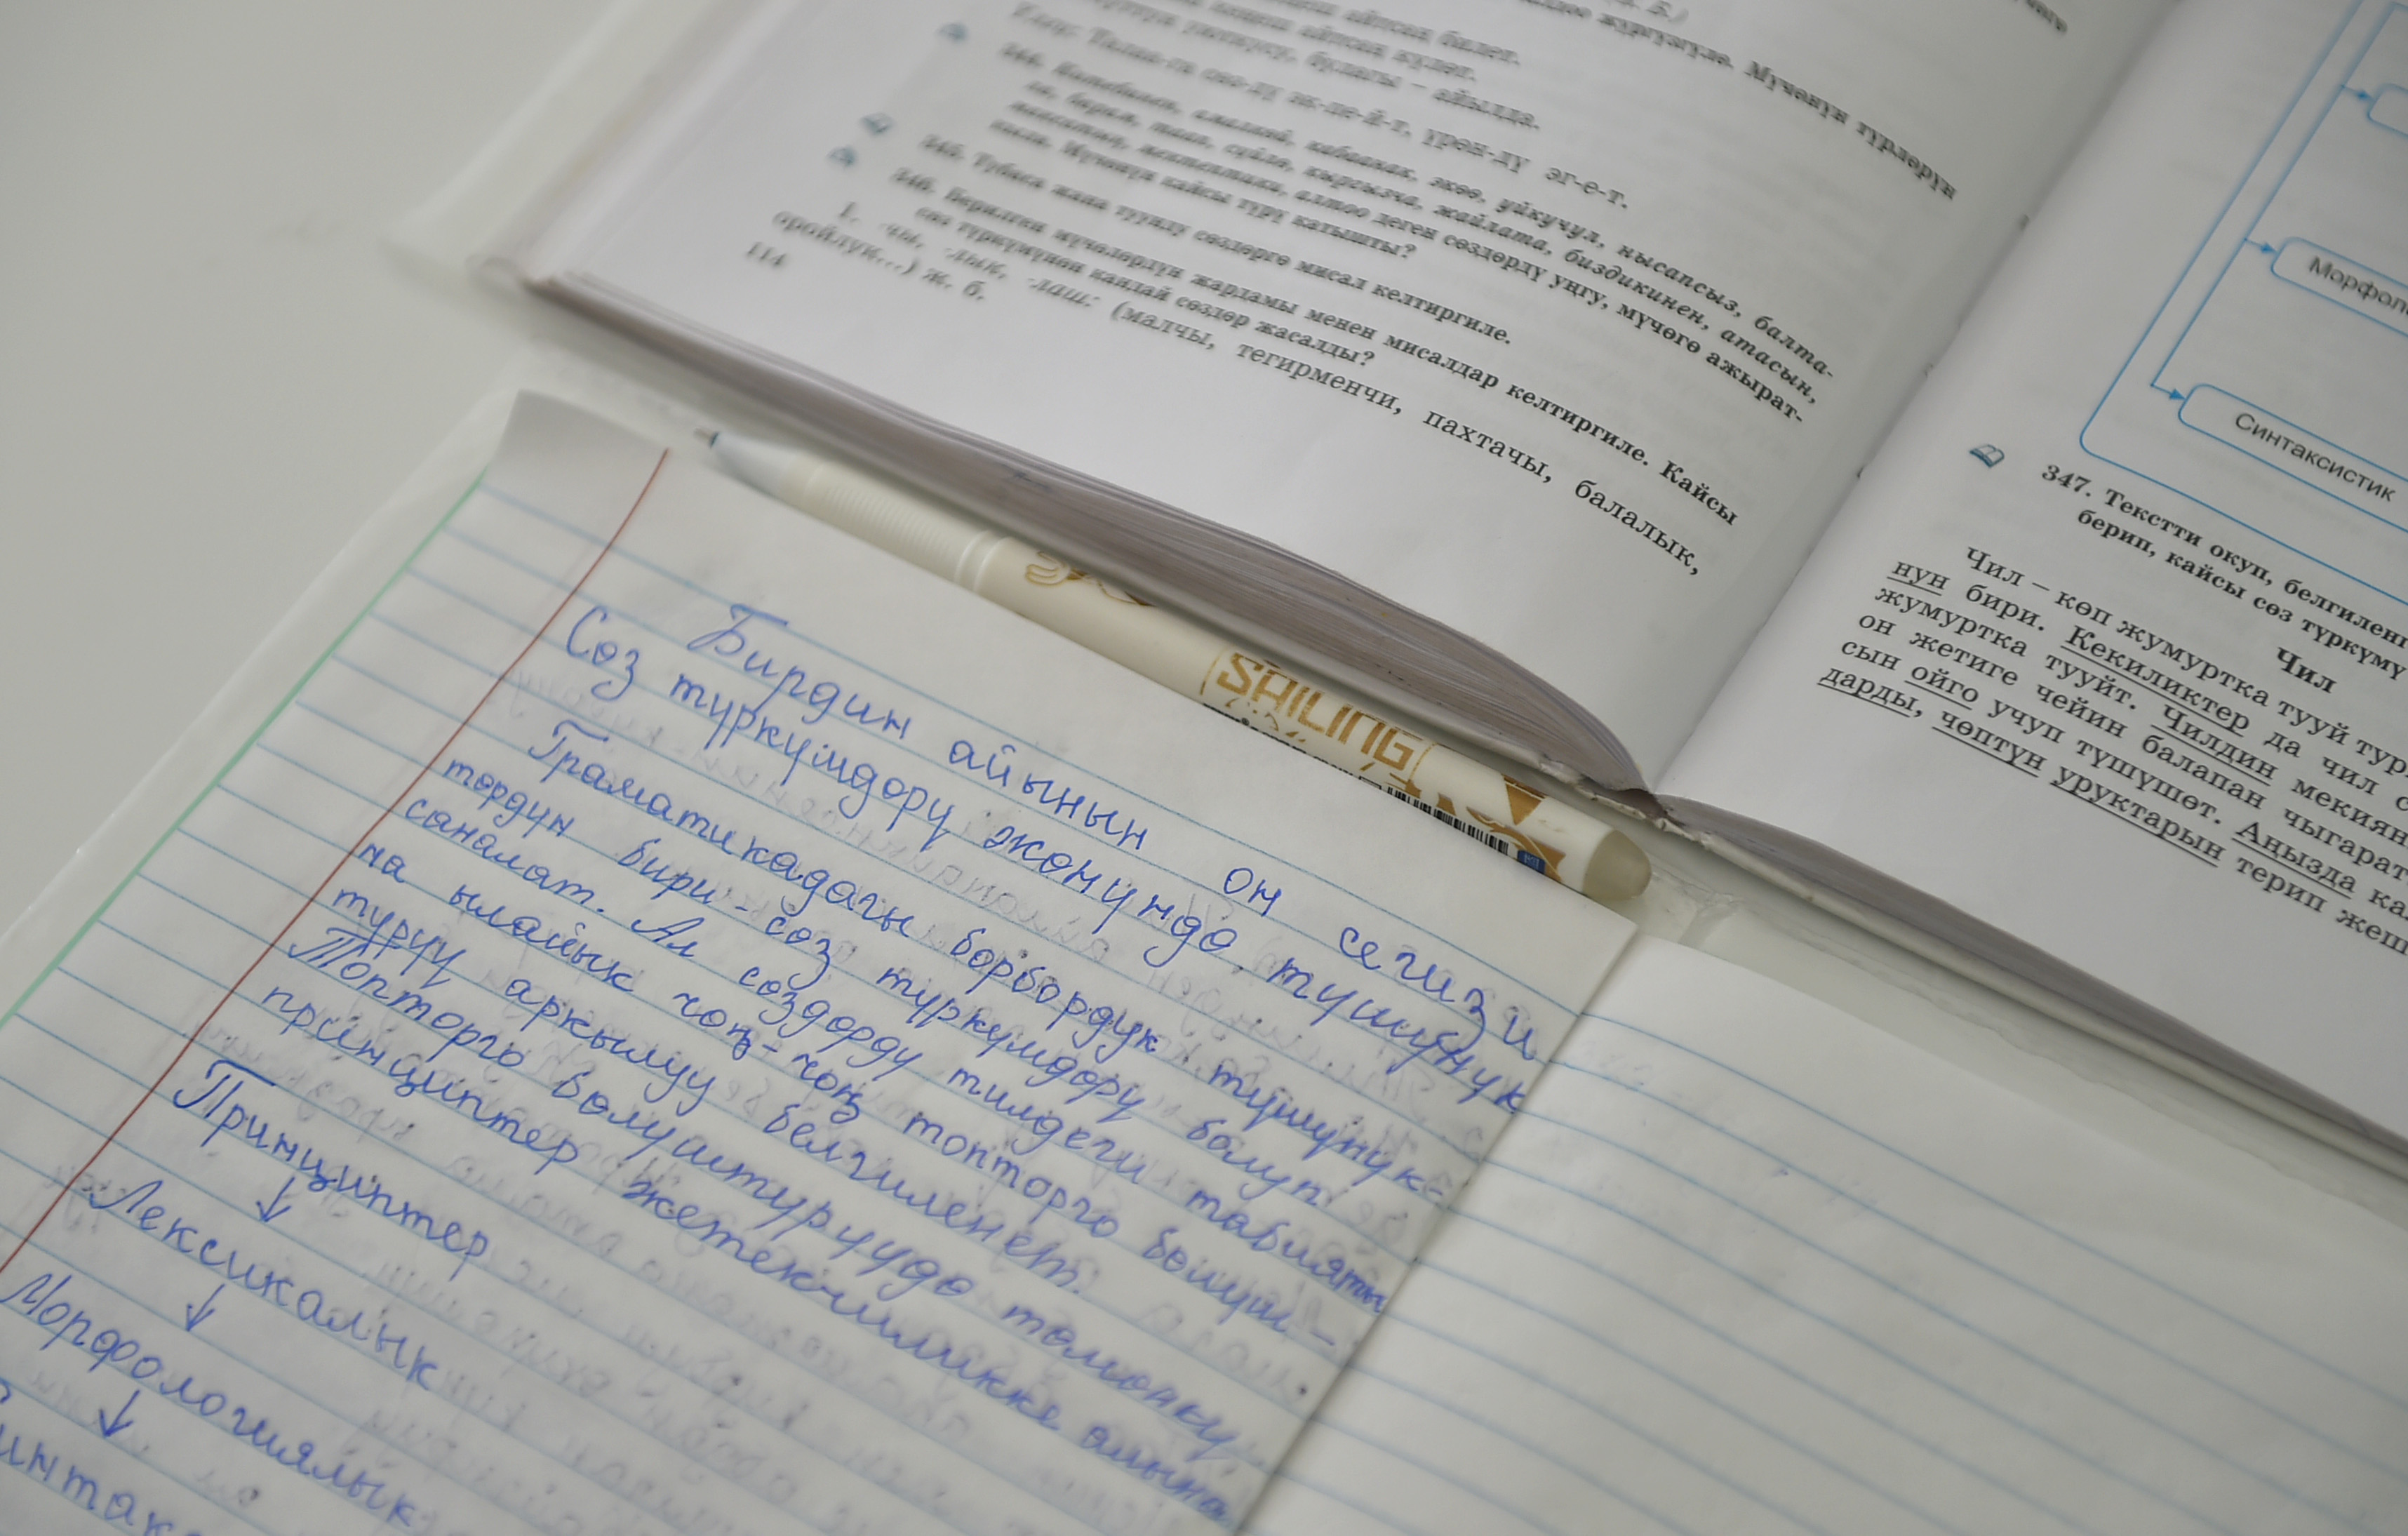 жүргүзгүлө. Мүчөнүн түрлөрүн
айтсаң билет.
айтсаң күлөт.
булагы – айылда.
эк-пе-й-т, үрөн-дү эг-е-т.
344. уйкучул, нысапсыз, балта-
кыргызча, жайлата, биздикинен, атасын,
алтоо деген сөздөрдү уңгу, мүчөгө ажырат-
Мүчөнүн кайсы түрү катышты?
345. Туунду сөздөргө мисал келтиргиле.
346. Берилген мүчөлөрдүн жардамы менен мисалдар келтиргиле. Кайсы
сөз түркүмүнөн кандай сөздөр жасалды?
1. -чы, -лык, -лаш: (малчы, тегирменчи, пахтачы, балалык,
оройлук...) ж. б.
114
Морфол
Синтаксистик
347. Текстти окуп, белгилен
берип, кайсы сөз түркүмү
Чил
Чил – көп жумуртка тууй тур
нун бири. Кекиликтер да чил с
жумуртка тууйт. Чилдин мекиян
он жетиге чейин балапан чыгарат
сын ойго учуп түшүшөт. Аңызда ка
дарды, чөптүн уруктарын терип жеш
SHILING
Бирдин айынын он сегизи
Сөз түркүмдөрү жөнүндө түшүнүк
Граматикадагы борбордук түшүнүк-
төрдүн бири - сөз түркүмдөрү болуп
саналат. Ал сөздөрдү тилдеги табияты
на ылайык чоң-чоң топторго бөлүш-
түрүү аркылуу белгиленет.
Топторго бөлүштүрүүдө төмөнкү
принциптер жетекчиликке алынат
Принциптер
↓
Лексикалык
↓
Морфологиялык
↓
интакс